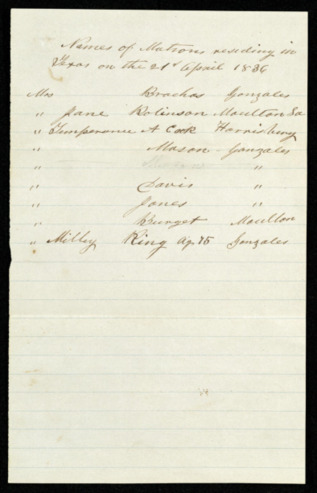 Names of Matrons residing in
Texas on the 21st April 1836
Mrs Brachas Gonzales
" Jane Robinson Moulton
" Temperance A Cook Harrisburg
" Mason Gonzales
" "
" Davis "
" Jones "
" Burget Moulton
" Milly King Age 75 Gonzales